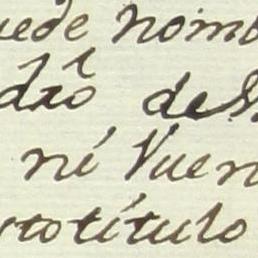 uede nomb
dro de
ni Vuen
rtotítulo